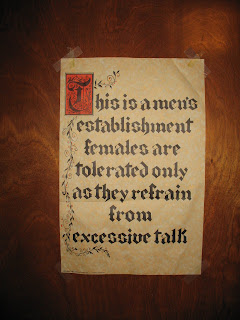 This is a men's
establishment
females are
tolerated only
as they refrain
from
excessive talk